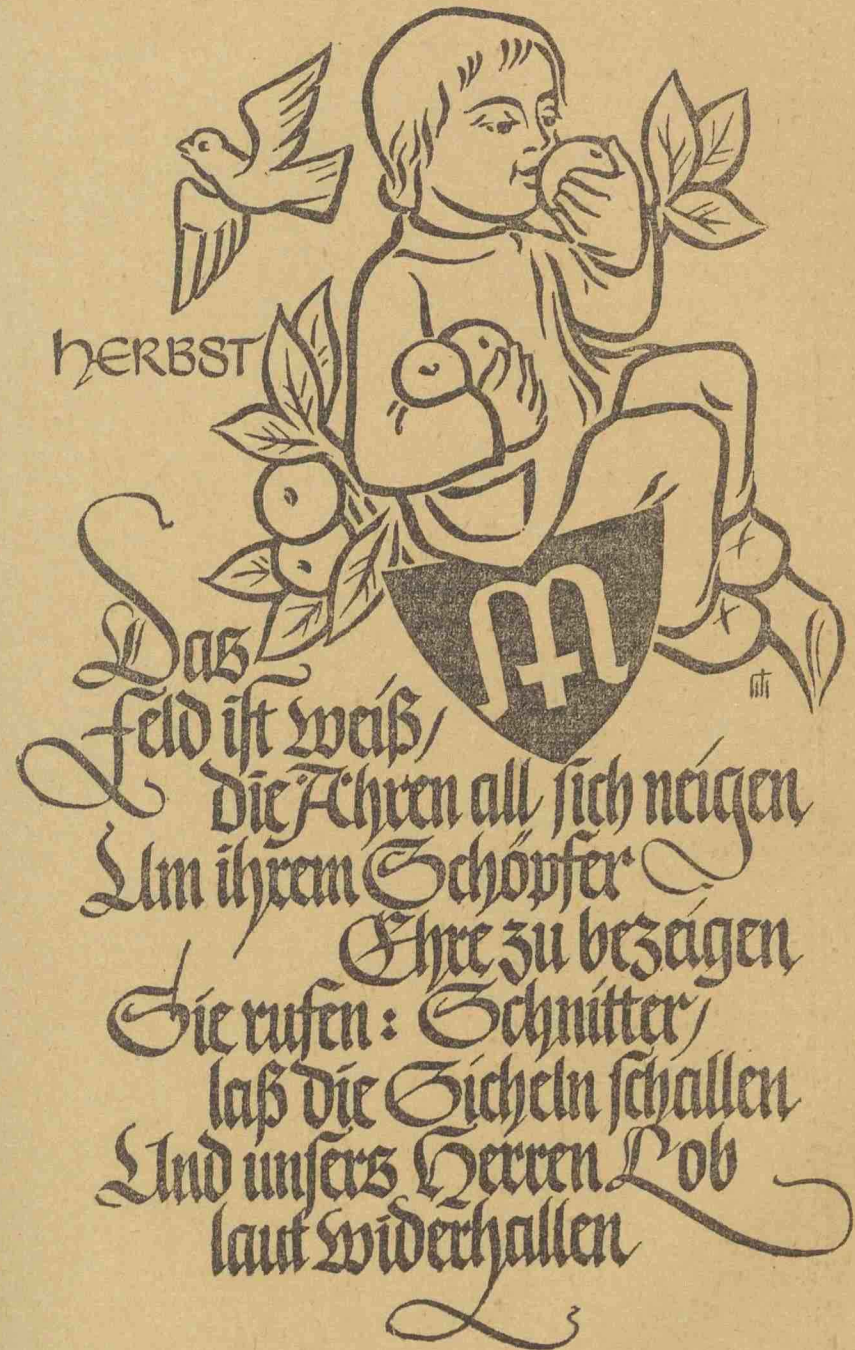 HERBST
Das
Feld ist weiß/
die Ähren all sich neigen
Um ihrem Schöpfer
Ehre zu bezeigen
Sie rufen: Schnitter/
laß die Sicheln schallen
Und unsers Herren Lob
laut widerhallen